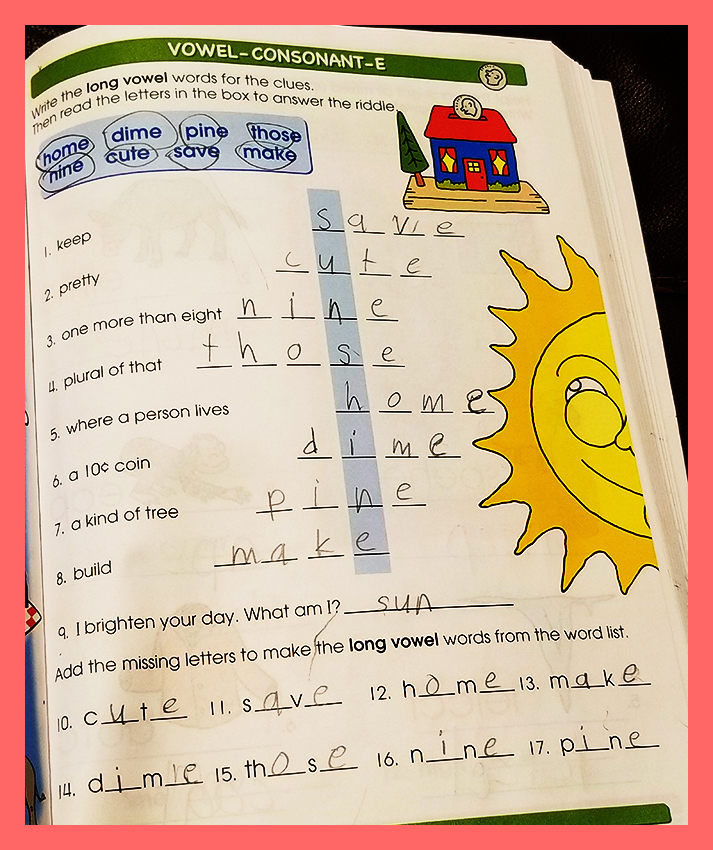 VOWEL-CONSONANT-E
Write the long vowel words for the clues.
Then read the letters in the box to answer the riddle.
home dime pine those
nine cute save make
1. keep save
2. pretty cute
3. one more than eight nine
4. plural of that those
5. where a person lives home
6. a 10¢ coin dime
7. a kind of tree pine
8. build make
9. I brighten your day. What am I? sun
Add the missing letters to make the long vowel words from the word list.
10. cute 11. save 12. home 13. make
14. dime 15. those 16. nine 17. pine